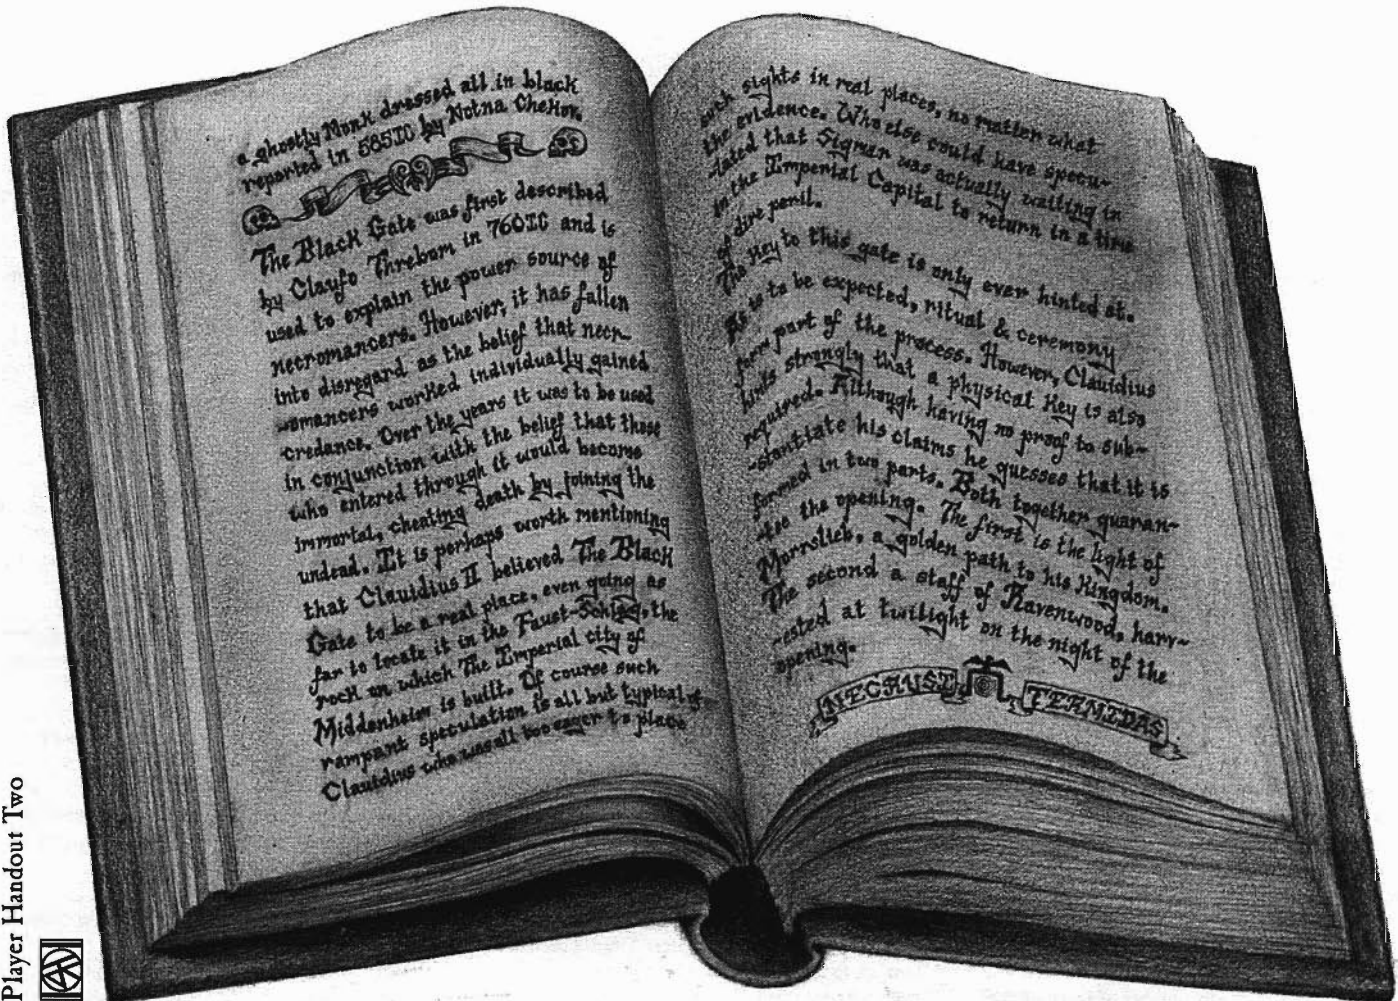 a ghostly Monk dressed all in black
reported in 585IC by Notna Chekov.
The Black Gate was first described
by Clayfo Threbom in 760IC and is
used to explain the power source of
necromancers. However, it has fallen
into disregard as the belief that necr-
-omancers worked individually gained
credance. Over the years it was to be used
in conjunction with the belief that those
who entered through it would become
immortal, cheating death by joining the
undead. It is perhaps worth mentioning
that Clauidius II believed The Black
Gate to be a real place, even going as
far to locate it in the Faust-Schlag, the
rock on which The Imperial city of
Middenheim is built. Of course such
rampant speculation is all but typical of
Clauidius who was all too eager to place
such sights in real places, no matter what
the evidence. Who else could have specu-
-lated that Sigmar was actually waiting in
in the Imperial Capital to return in a time
of dire peril.
The Key to this gate is only ever hinted at.
As is to be expected, ritual & ceremony
form part of the process. However, Clauidius
hints strongly that a physical Key is also
required. Although having no proof to sub-
-stantiate his claims he guesses that it is
formed in two parts. Both together guaran-
-tee the opening. The first is the light of
Morrslieb, a golden path to his Kingdom.
The second a staff of Ravenwood, harv-
-ested at twilight on the night of the
opening.
NECAUSI TERNIDAS
Player Handout Two